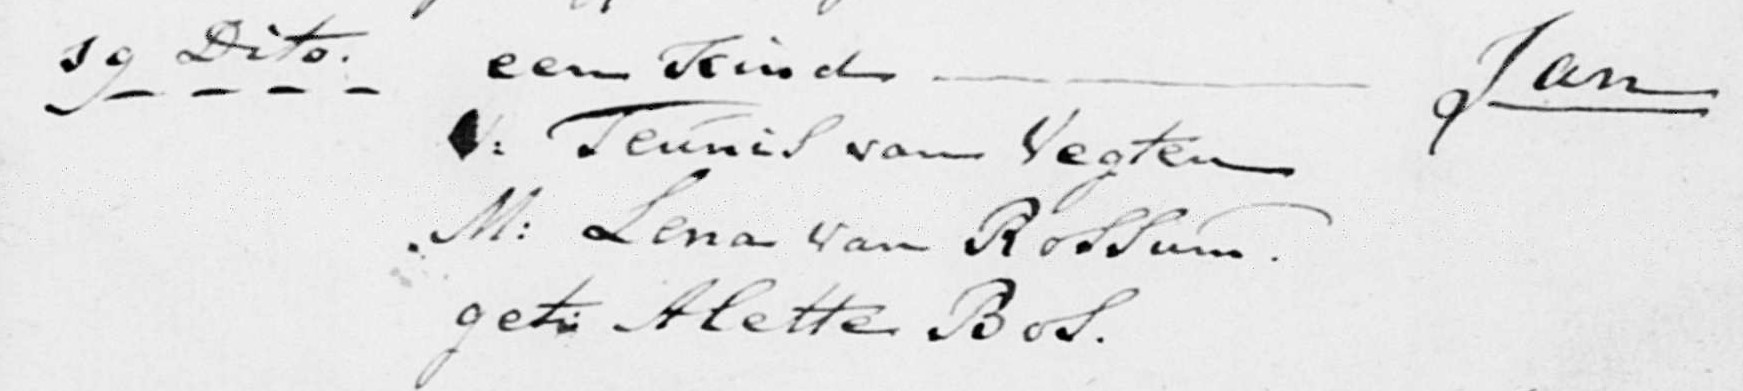 19 Dito. een Kind Jan
V: Teunis van Vegten
M: Lena van Rossum.
get: Alette Bos.